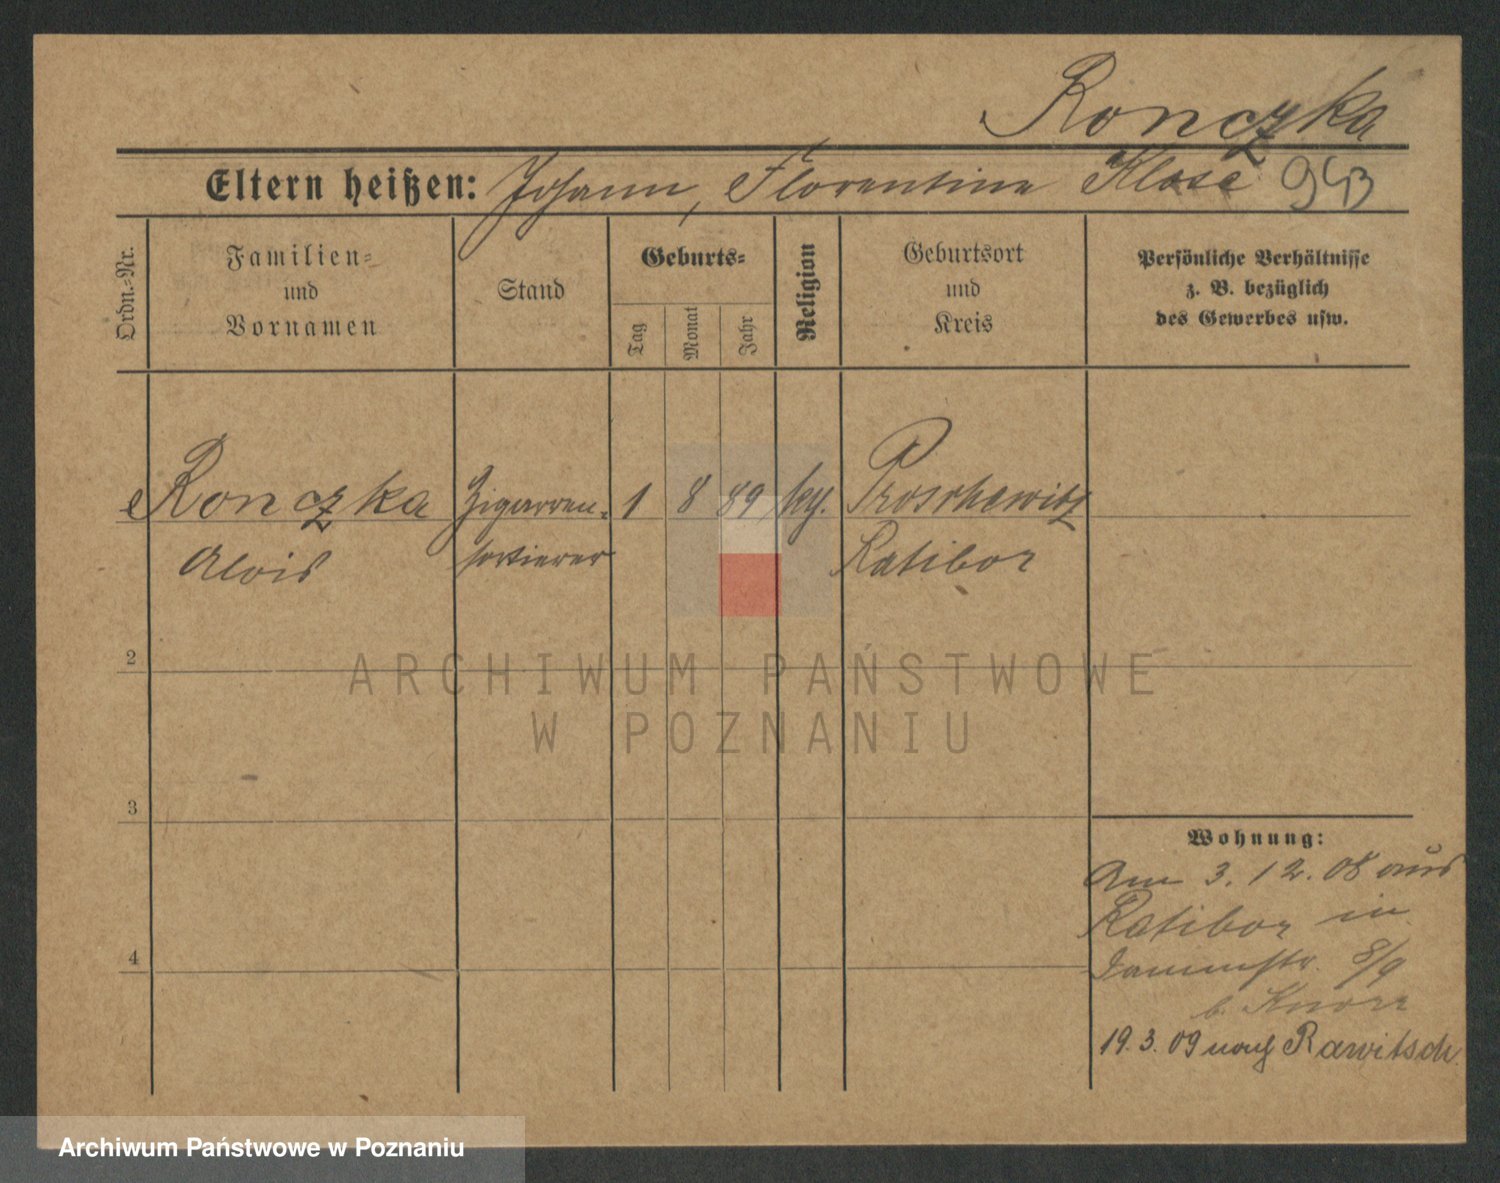 Ronczka
Eltern heißen: Johann, Florentine Klose 943
Ordn.-Nr.
Familien-
und
Vornamen
Stand
Geburts-
Tag
Monat
Jahr
Religion
Geburtsort
und
Kreis
Persönliche Verhältnisse
z. B. bezüglich
des Gewerbes usw.
Ronczka Zigarren- 1 8 89 kth. Proschowitz
Alois sortierer Ratibor
2
3
4
Wohnung:
Am 3. 12. 08 aus
Ratibor in
Dammstr. 8/9
b. Knorr
19. 3. 09 nach Rawitsch
ARCHIWUM PAŃSTWOWE
W POZNANIU
Archiwum Państwowe w Poznaniu